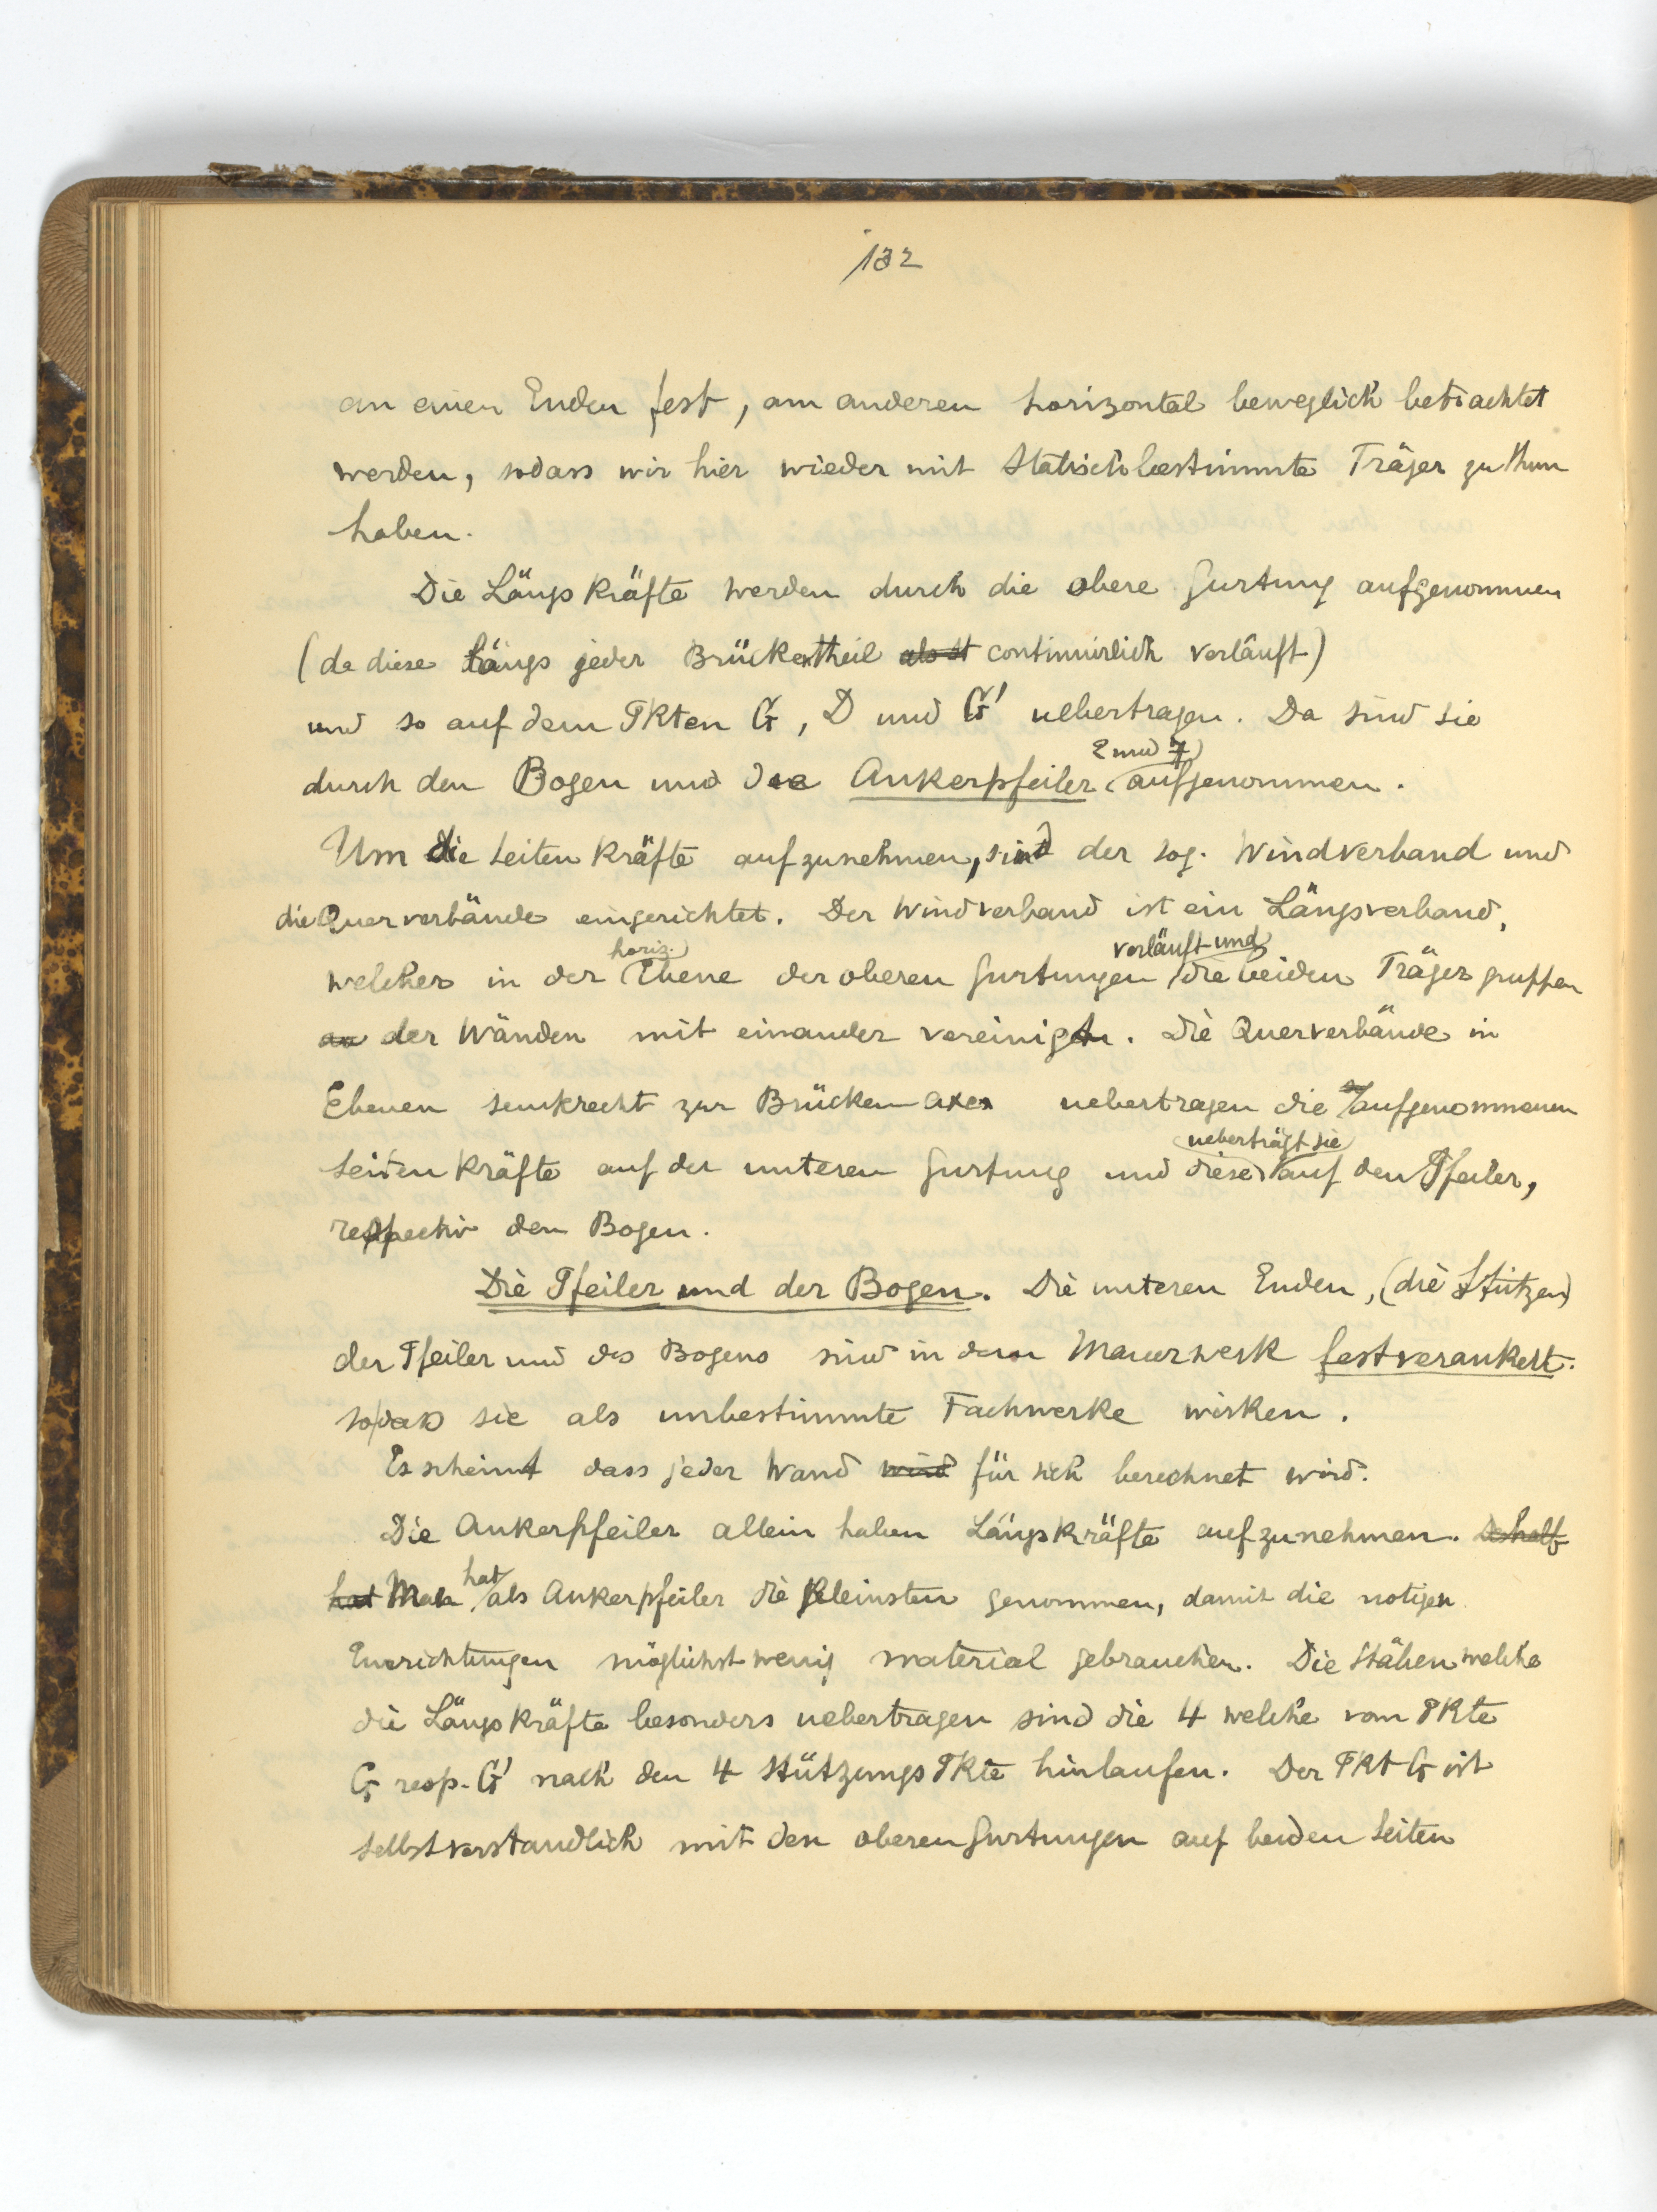 132
an einen Enden fest, am anderen horizontal beweglich betrachtet
werden, sodass wir hier wieder mit statisch bestimmte Träger zu thun
haben.
Die Längskräfte werden durch die obere Gurtung aufgenommen
(da diese längs jeder Brückentheil continuirlich verläuft)
und so auf dem Pkten G, D und G' uebertragen. Da sind sie
2 und 7
durch den Bogen und die Ankerpfeiler aufgenommen.
Um die Seitenkräfte aufzunehmen, sind der sog. Windverband und
die Querverbände eingerichtet. Der Windverband ist ein Längsverband,
horiz. verläuft und
welcher in der Ebene der oberen Gurtungen die beiden Trägergruppen
an der Wänden mit einander vereinigt. Die Querverbände in
Ebenen senkrecht zur Brückenaxe uebertragen die aufgenommenen
ueberträgt sie
Seitenkräfte auf der unteren Gurtung und diese auf den Pfeiler,
respectiv den Bogen.
Die Pfeiler und der Bogen. Die unteren Enden, (die Stützen)
der Pfeiler und des Bogens sind in dem Mauerwerk fest verankert.
sodass sie als unbestimmte Fachwerke wirken.
Es scheint dass jeder Wand wird für sich berechnet wird.
Die Ankerpfeiler allein haben Längskräfte aufzunehmen. Deshalb
hat
hat Man als Ankerpfeiler die kleinsten genommen, damit die notigen
Einrichtungen möglichst wenig material gebrauchen. Die Stäben welche
die Längskräfte besonders uebertragen sind die 4 welche vom Pkte
G resp. G' nach den 4 StützungsPkte hinlaufen. Der Pkt G ist
selbstverstandlich mit den oberen Gurtungen auf beiden Seiten